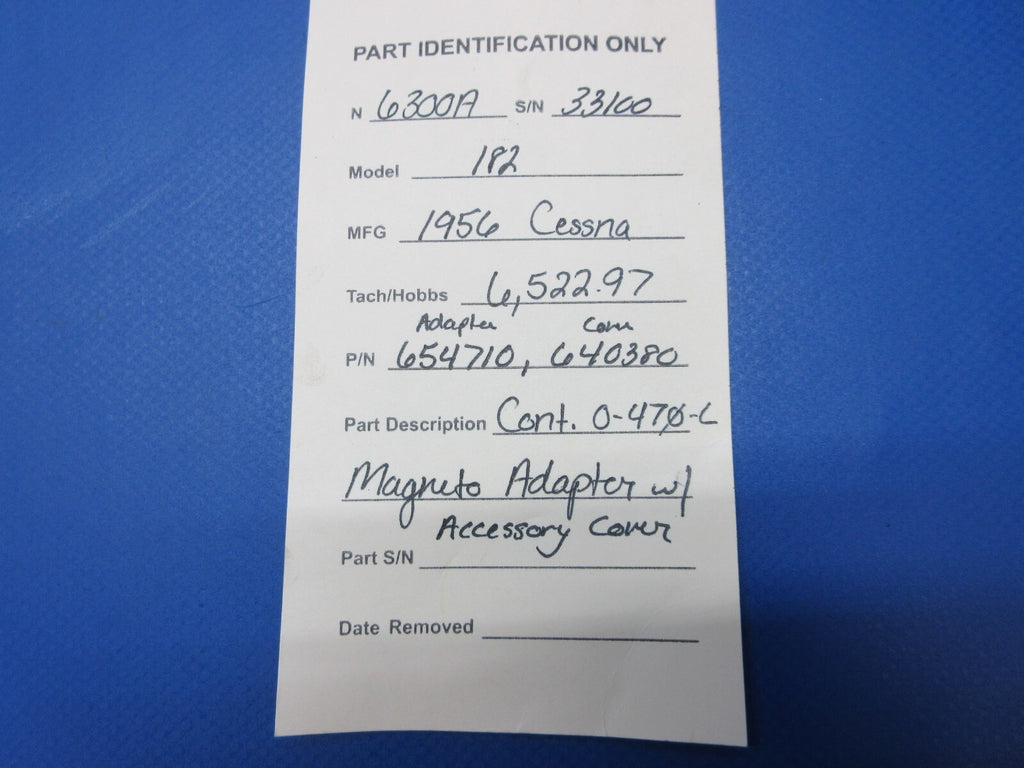 PART IDENTIFICATION ONLY
N 6300A S/N 33100
Model 182
MFG 1956 Cessna
Tach/Hobbs 6,522.97
Adapter Cover
P/N 654710, 640380
Part Description Cont. O-470-L
Magneto Adapter w/
Accessory Cover
Part S/N
Date Removed